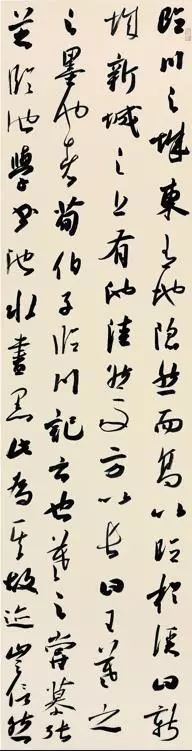 臨川之城東有地隱然而高以臨於溪曰新
城新城之上有池洼然而方以長曰王羲之
之墨池者荀伯子臨川記云也羲之嘗慕張
芝臨池學書池水盡黑此為其故迹豈信然